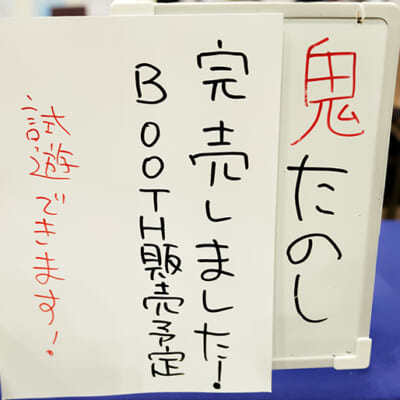 鬼たのし
完売しました!
BOOTH販売予定
試遊できます!